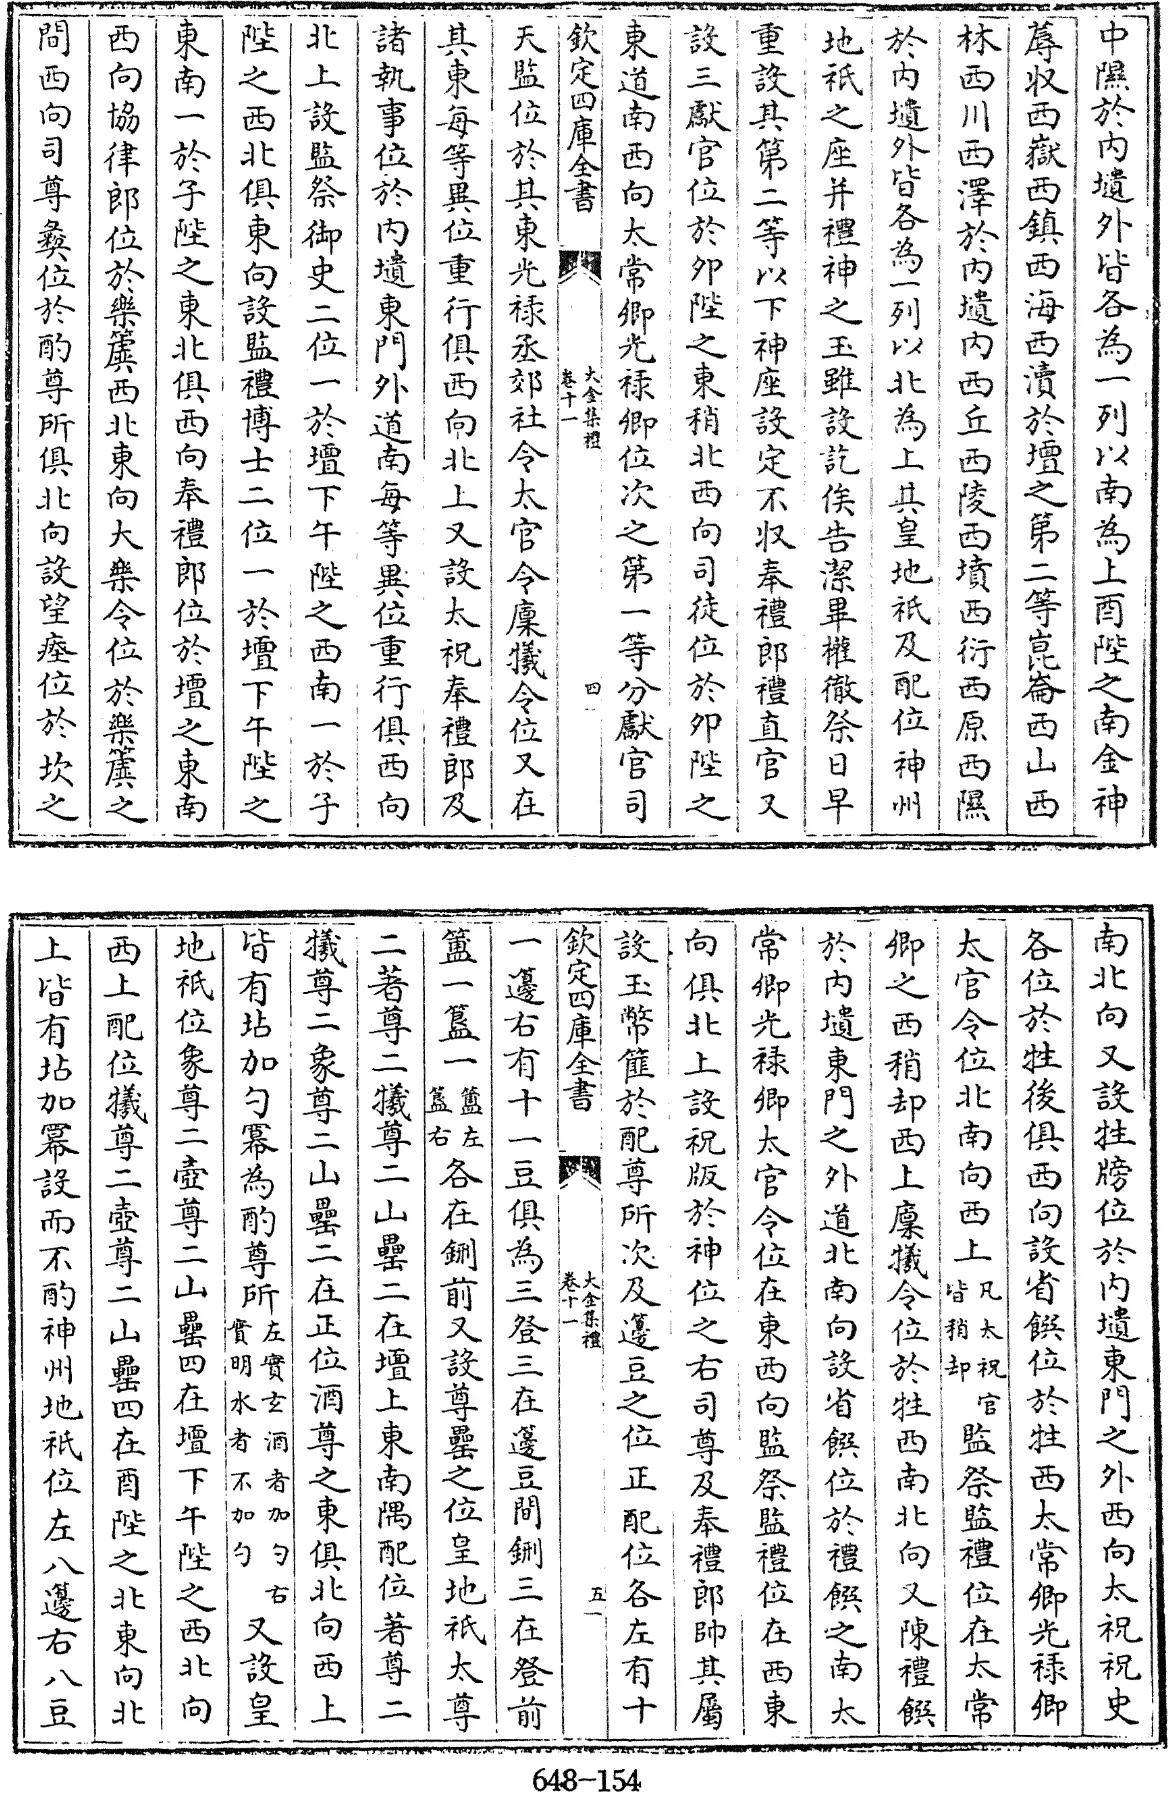 中隰於内壝外皆各為一列以南為上酉陛之南金神
蓐收西嶽西鎮西海西瀆於壇之第二等崑崙西山西
林西川西澤於内壝内西丘西陵西墳西衍西原西隰
於内壝外皆各為一列以北為上其皇地祇及配位神州
地祇之座并禮神之玉雖設訖俟告潔畢權徹祭日早
重設其第二等以下神座設定不收奉禮郎禮直官又
設三獻官位於卯陛之東稍北西向司徒位於卯陛之
東道南西向太常卿光禄卿位次之第一等分獻官司
欽定四庫全書
大金集禮
卷十一
四
天監位於其東光禄丞郊社令太官令廩犧令位又在
其東每等異位重行俱西向北上又設太祝奉禮郎及
諸執事位於内壝東門外道南每等異位重行俱西向
北上設監祭御史二位一於壇下午陛之西南一於子
陛之西北俱東向設監禮博士二位一於壇下午陛之
東南一於子陛之東北俱西向奉禮郎位於壇之東南
西向協律郎位於樂簴西北東向大樂令位於樂簴之
間西向司尊彝位於酌尊所俱北向設望瘞位於坎之
南北向又設牲牓位於内壝東門之外西向太祝祝史
各位於牲後俱西向設省饌位於牲西太常卿光禄卿
太官令位北南向西上凡太祝官皆稍却監祭監禮位在太常
卿之西稍却西上廩犧令位於牲西南北向又陳禮饌
於内壝東門之外道北南向設省饌位於禮饌之南太
常卿光禄卿太官令位在東西向監祭監禮位在西東
向俱北上設祝版於神位之右司尊及奉禮郎帥其屬
設玉幣篚於配尊所次及籩豆之位正配位各左有十
欽定四庫全書
大金集禮
卷十一
五
一籩右有十一豆俱為三登三在籩豆間鉶三在登前
簠一簋一簠左簋右各在鉶前又設尊罍之位皇地祇太尊
二著尊二犧尊二山罍二在壇上東南隅配位著尊二
犧尊二象尊二山罍二在正位酒尊之東俱北向西上
皆有坫加勺冪為酌尊所左實玄酒者加勺右實明水者不加勺又設皇
地祇位象尊二壺尊二山罍四在壇下午陛之西北向
西上配位犧尊二壺尊二山罍四在酉陛之北東向北
上皆有坫加冪設而不酌神州地祇位左八籩右八豆
648-154